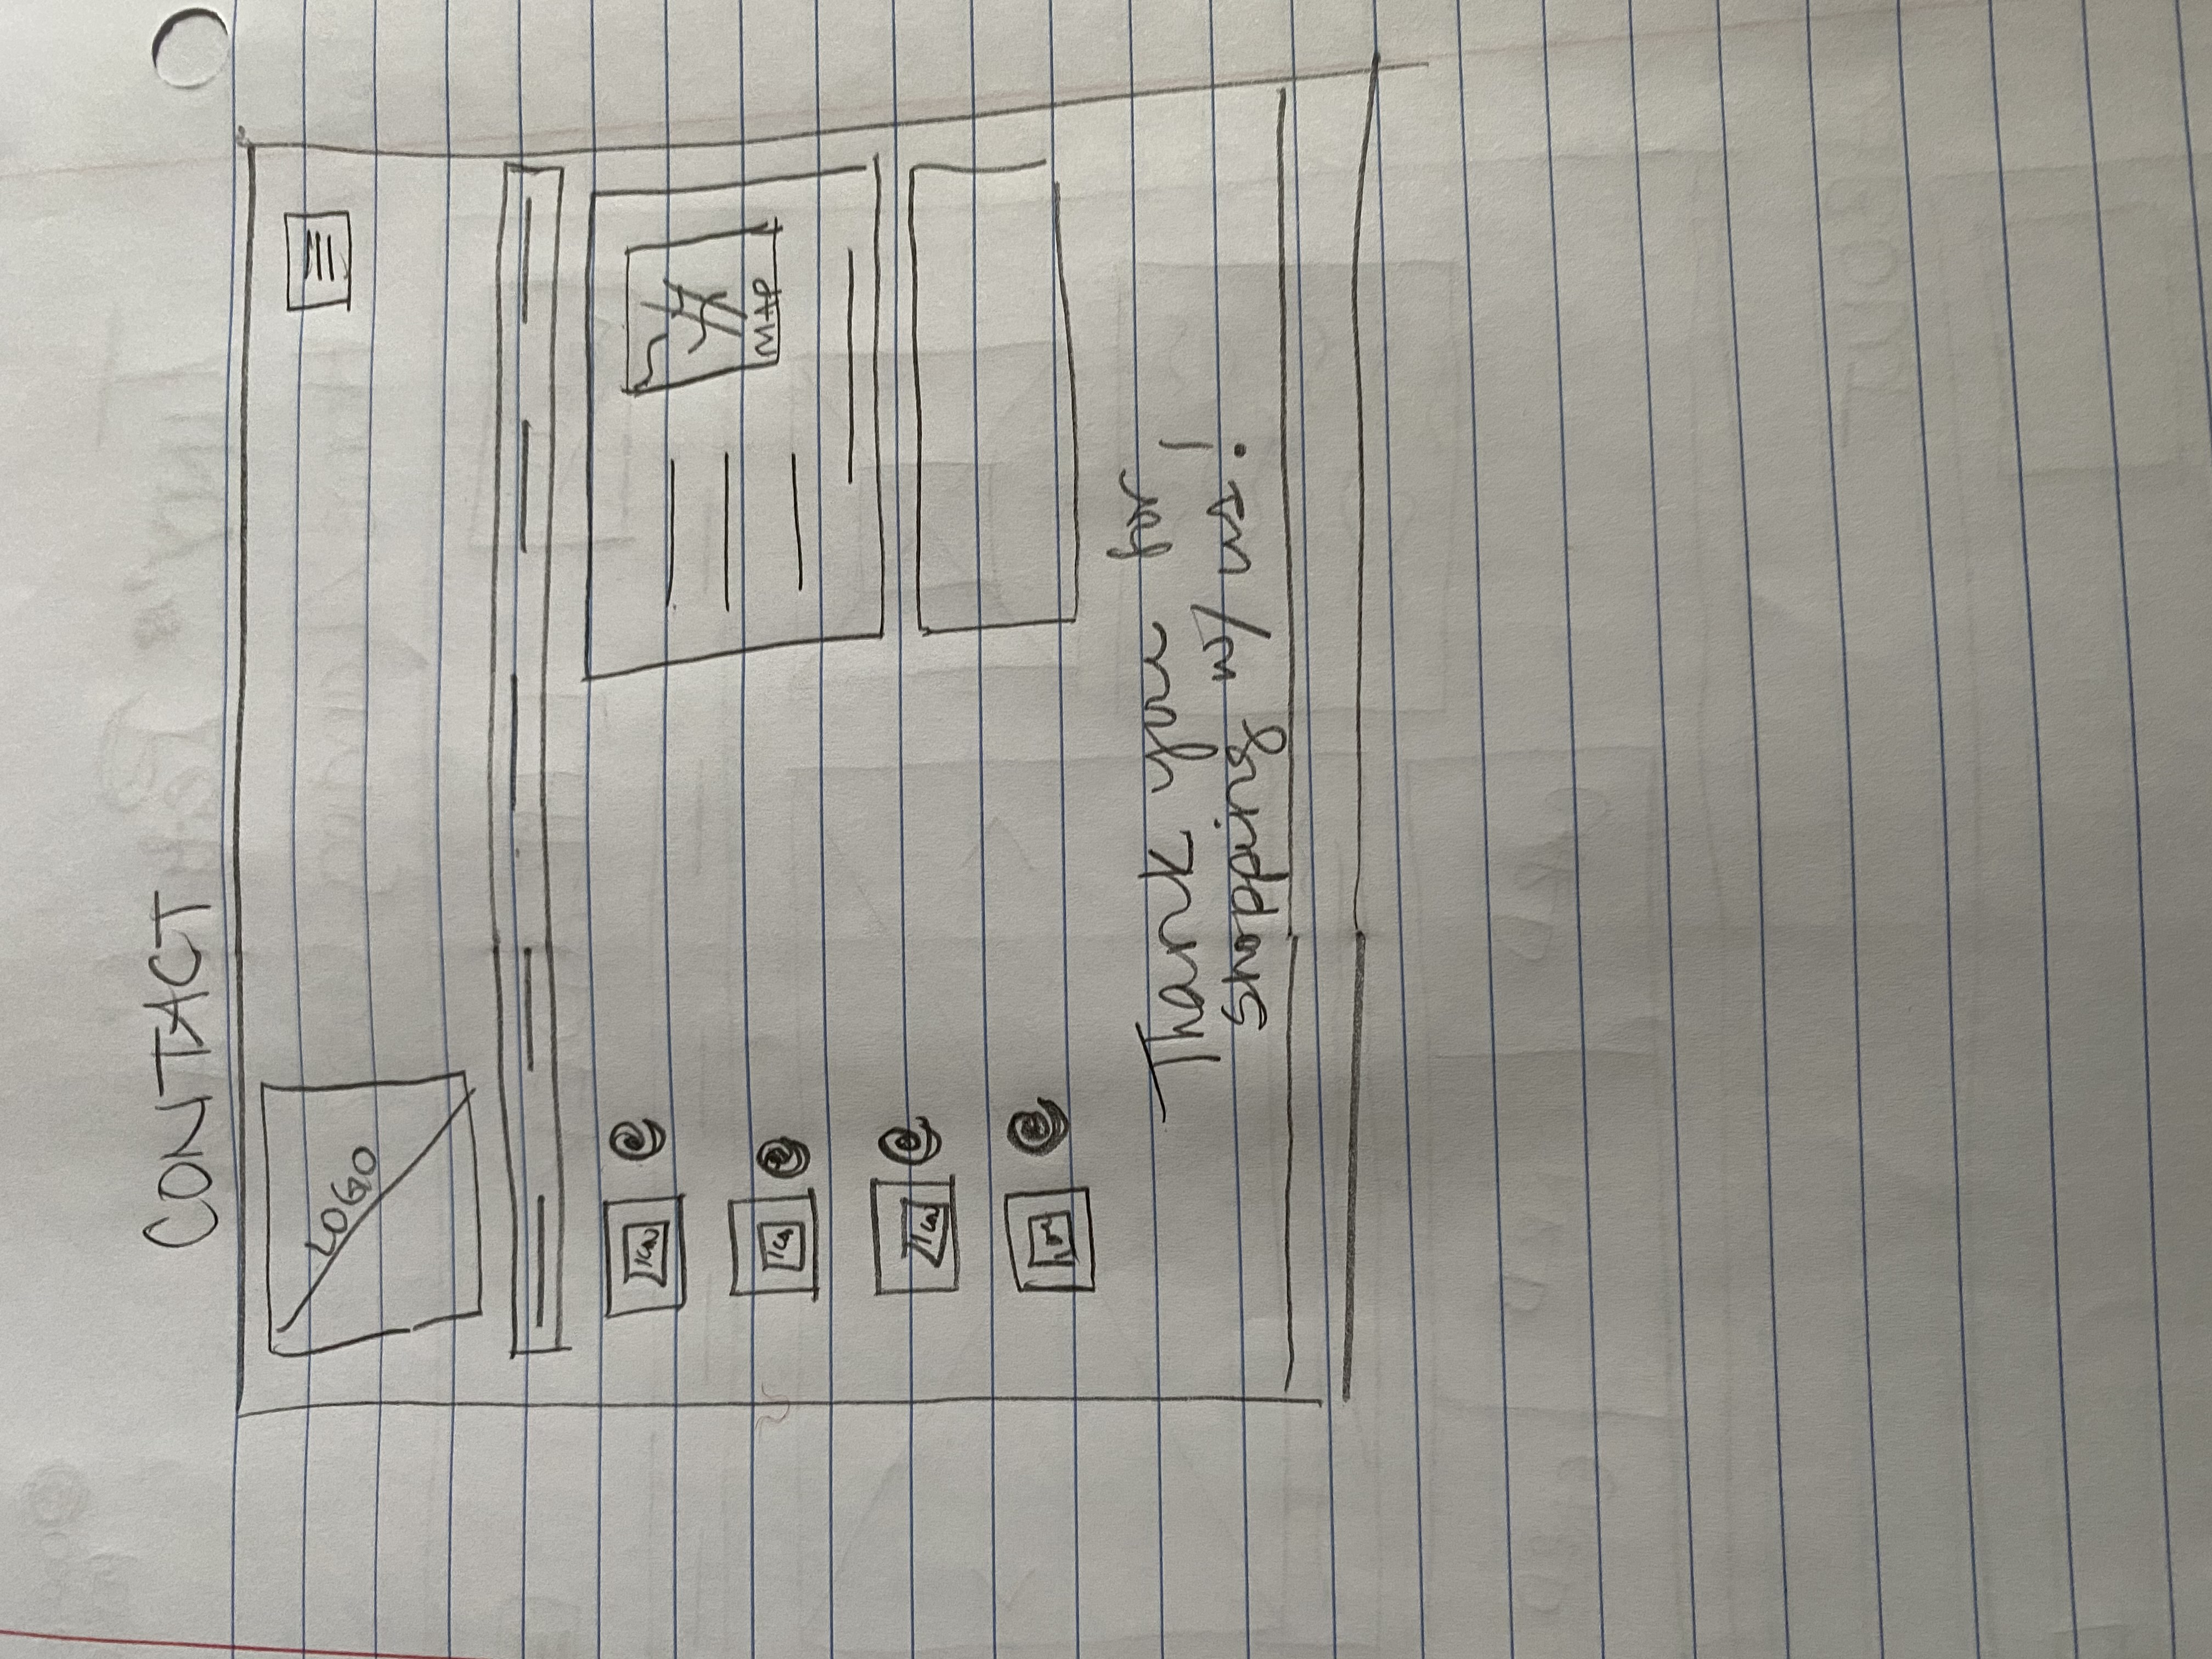 CONTACT
LOGO
ICON
@
MAP
ICON
@
ICON
@
@
Thank you for
shopping w/ us!